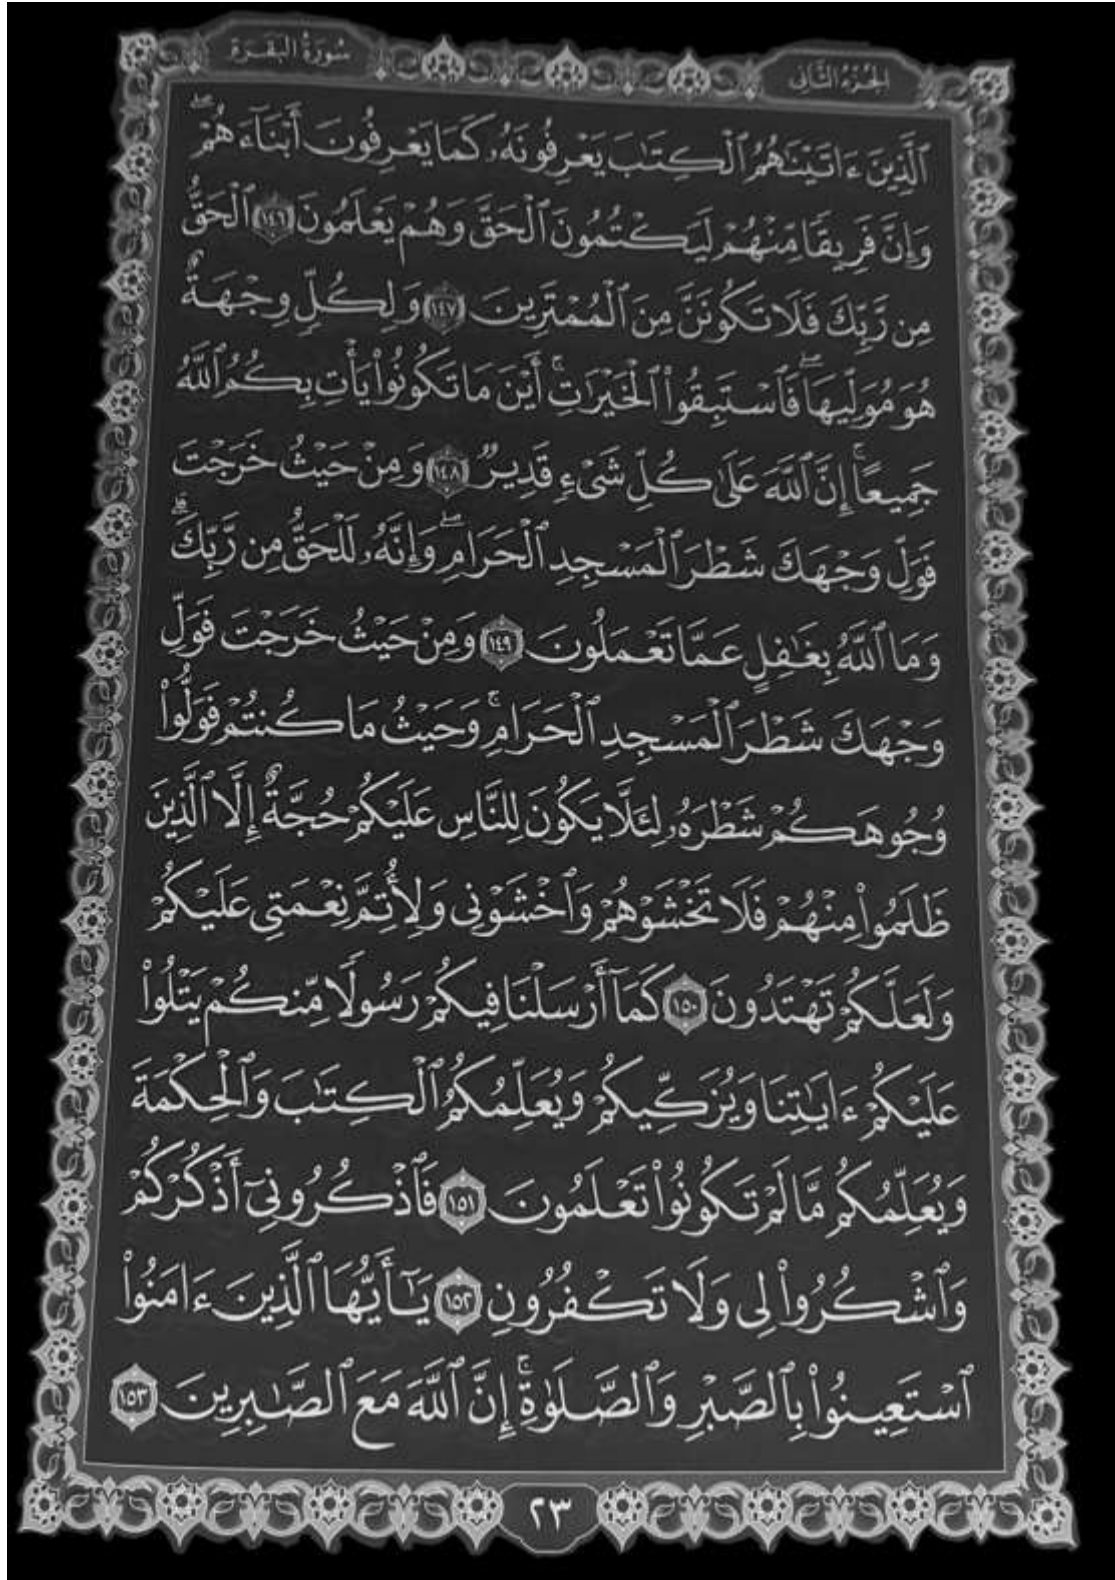 الجزء الثاني
سورة البقرة
ٱلَّذِينَ ءَاتَيْنَٰهُمُ ٱلْكِتَٰبَ يَعْرِفُونَهُۥ كَمَا يَعْرِفُونَ أَبْنَآءَهُمْ ۖ
وَإِنَّ فَرِيقًا مِّنْهُمْ لَيَكْتُمُونَ ٱلْحَقَّ وَهُمْ يَعْلَمُونَ ١٤٦ ٱلْحَقُّ
مِن رَّبِّكَ فَلَا تَكُونَنَّ مِنَ ٱلْمُمْتَرِينَ ١٤٧ وَلِكُلٍّ وِجْهَةٌ
هُوَ مُوَلِّيهَا ۖ فَٱسْتَبِقُوا۟ ٱلْخَيْرَٰتِ ۚ أَيْنَ مَا تَكُونُوا۟ يَأْتِ بِكُمُ ٱللَّهُ
جَمِيعًا ۚ إِنَّ ٱللَّهَ عَلَىٰ كُلِّ شَىْءٍ قَدِيرٌ ١٤٨ وَمِنْ حَيْثُ خَرَجْتَ
فَوَلِّ وَجْهَكَ شَطْرَ ٱلْمَسْجِدِ ٱلْحَرَامِ ۖ وَإِنَّهُۥ لَلْحَقُّ مِن رَّبِّكَ ۗ
وَمَا ٱللَّهُ بِغَٰفِلٍ عَمَّا تَعْمَلُونَ ١٤٩ وَمِنْ حَيْثُ خَرَجْتَ فَوَلِّ
وَجْهَكَ شَطْرَ ٱلْمَسْجِدِ ٱلْحَرَامِ ۚ وَحَيْثُ مَا كُنتُمْ فَوَلُّوا۟
وُجُوهَكُمْ شَطْرَهُۥ لِئَلَّا يَكُونَ لِلنَّاسِ عَلَيْكُمْ حُجَّةٌ إِلَّا ٱلَّذِينَ
ظَلَمُوا۟ مِنْهُمْ فَلَا تَخْشَوْهُمْ وَٱخْشَوْنِى وَلِأُتِمَّ نِعْمَتِى عَلَيْكُمْ
وَلَعَلَّكُمْ تَهْتَدُونَ ١٥٠ كَمَآ أَرْسَلْنَا فِيكُمْ رَسُولًا مِّنكُمْ يَتْلُوا۟
عَلَيْكُمْ ءَايَٰتِنَا وَيُزَكِّيكُمْ وَيُعَلِّمُكُمُ ٱلْكِتَٰبَ وَٱلْحِكْمَةَ
وَيُعَلِّمُكُم مَّا لَمْ تَكُونُوا۟ تَعْلَمُونَ ١٥١ فَٱذْكُرُونِىٓ أَذْكُرْكُمْ
وَٱشْكُرُوا۟ لِى وَلَا تَكْفُرُونِ ١٥٢ يَٰٓأَيُّهَا ٱلَّذِينَ ءَامَنُوا۟
ٱسْتَعِينُوا۟ بِٱلصَّبْرِ وَٱلصَّلَوٰةِ ۚ إِنَّ ٱللَّهَ مَعَ ٱلصَّٰبِرِينَ ١٥٣
٢٣